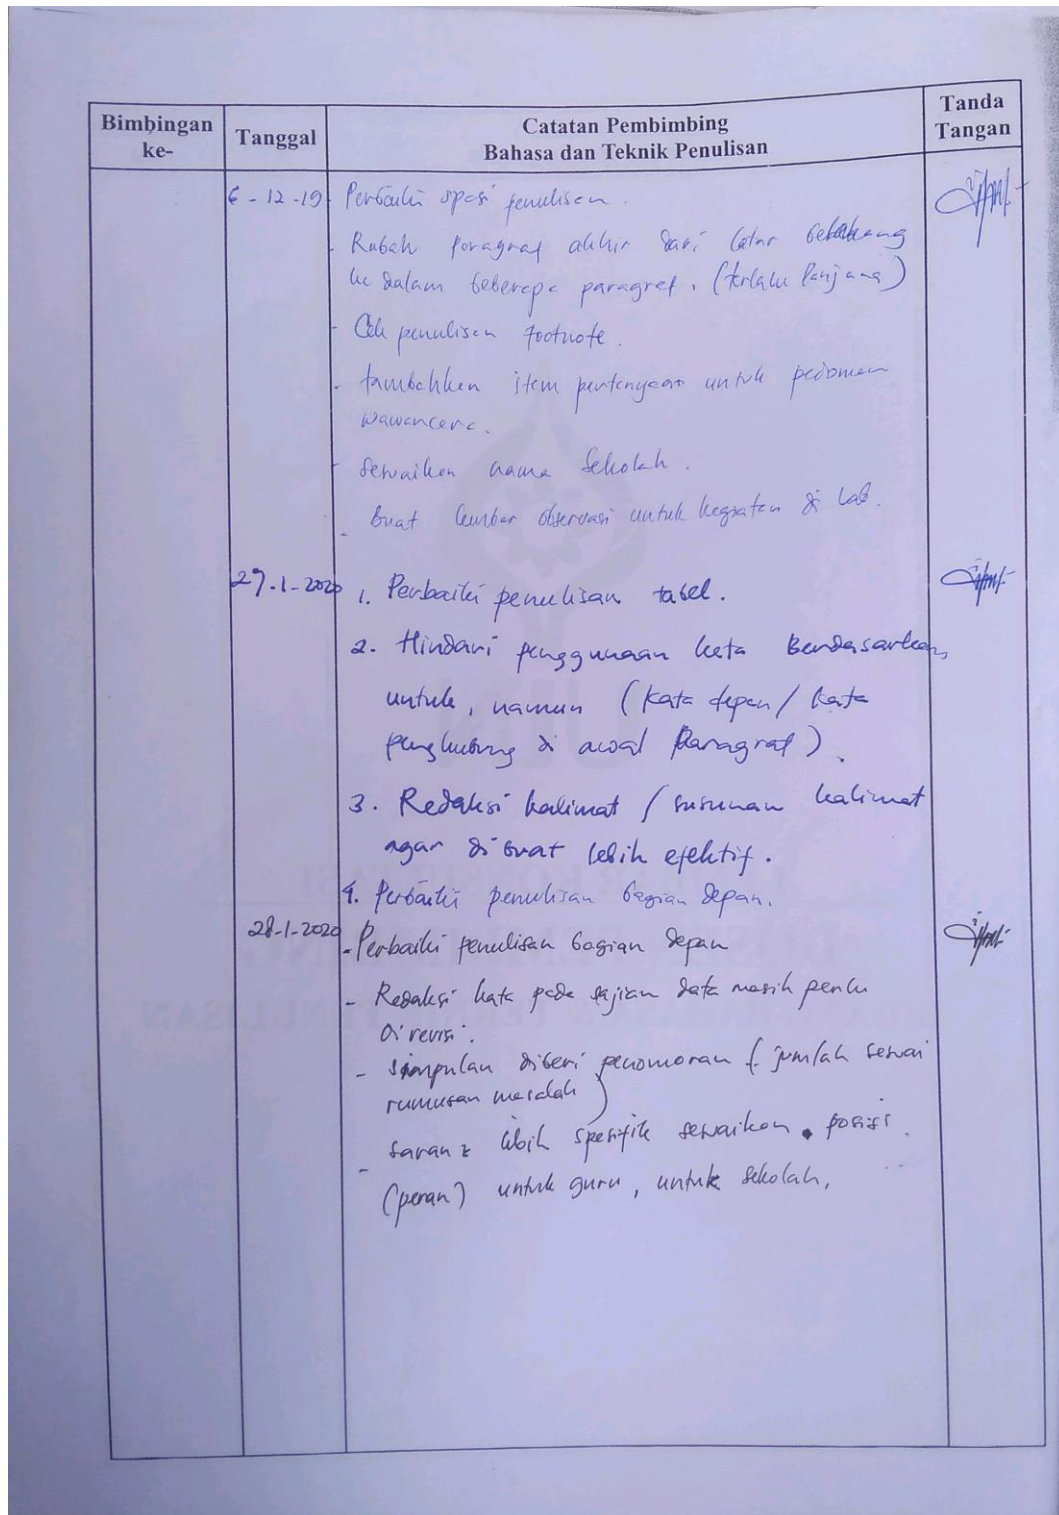 Bimbingan ke-
Tanggal
Catatan Pembimbing
Bahasa dan Teknik Penulisan
Tanda Tangan
6-12-19 - Perbaiki spasi penulisan.
- Rubah paragraf akhir dari latar belakang
ke dalam beberapa paragraf. (terlalu panjang)
- Cek penulisan footnote.
- tambahkan item pertanyaan untuk pedoman
wawancara.
- Sesuaikan nama Sekolah.
- Buat lembar observasi untuk kegiatan di Lab.
27-1-2020 1. Perbaiki penulisan tabel.
2. Hindari penggunaan kata Berdasarkan,
untuk, namun (kata depan / kata
penghubung di awal Paragraf).
3. Redaksi kalimat / susunan kalimat
agar dibuat lebih efektif.
4. Perbaiki penulisan bagian depan.
28-1-2020 - Perbaiki penulisan bagian depan
- Redaksi kata pada sajian data masih perlu
direvisi.
- simpulan diberi penomoran (jumlah sesuai
rumusan masalah)
- saran2 lebih spesifik sesuaikan posisi.
(peran) untuk guru, untuk sekolah,